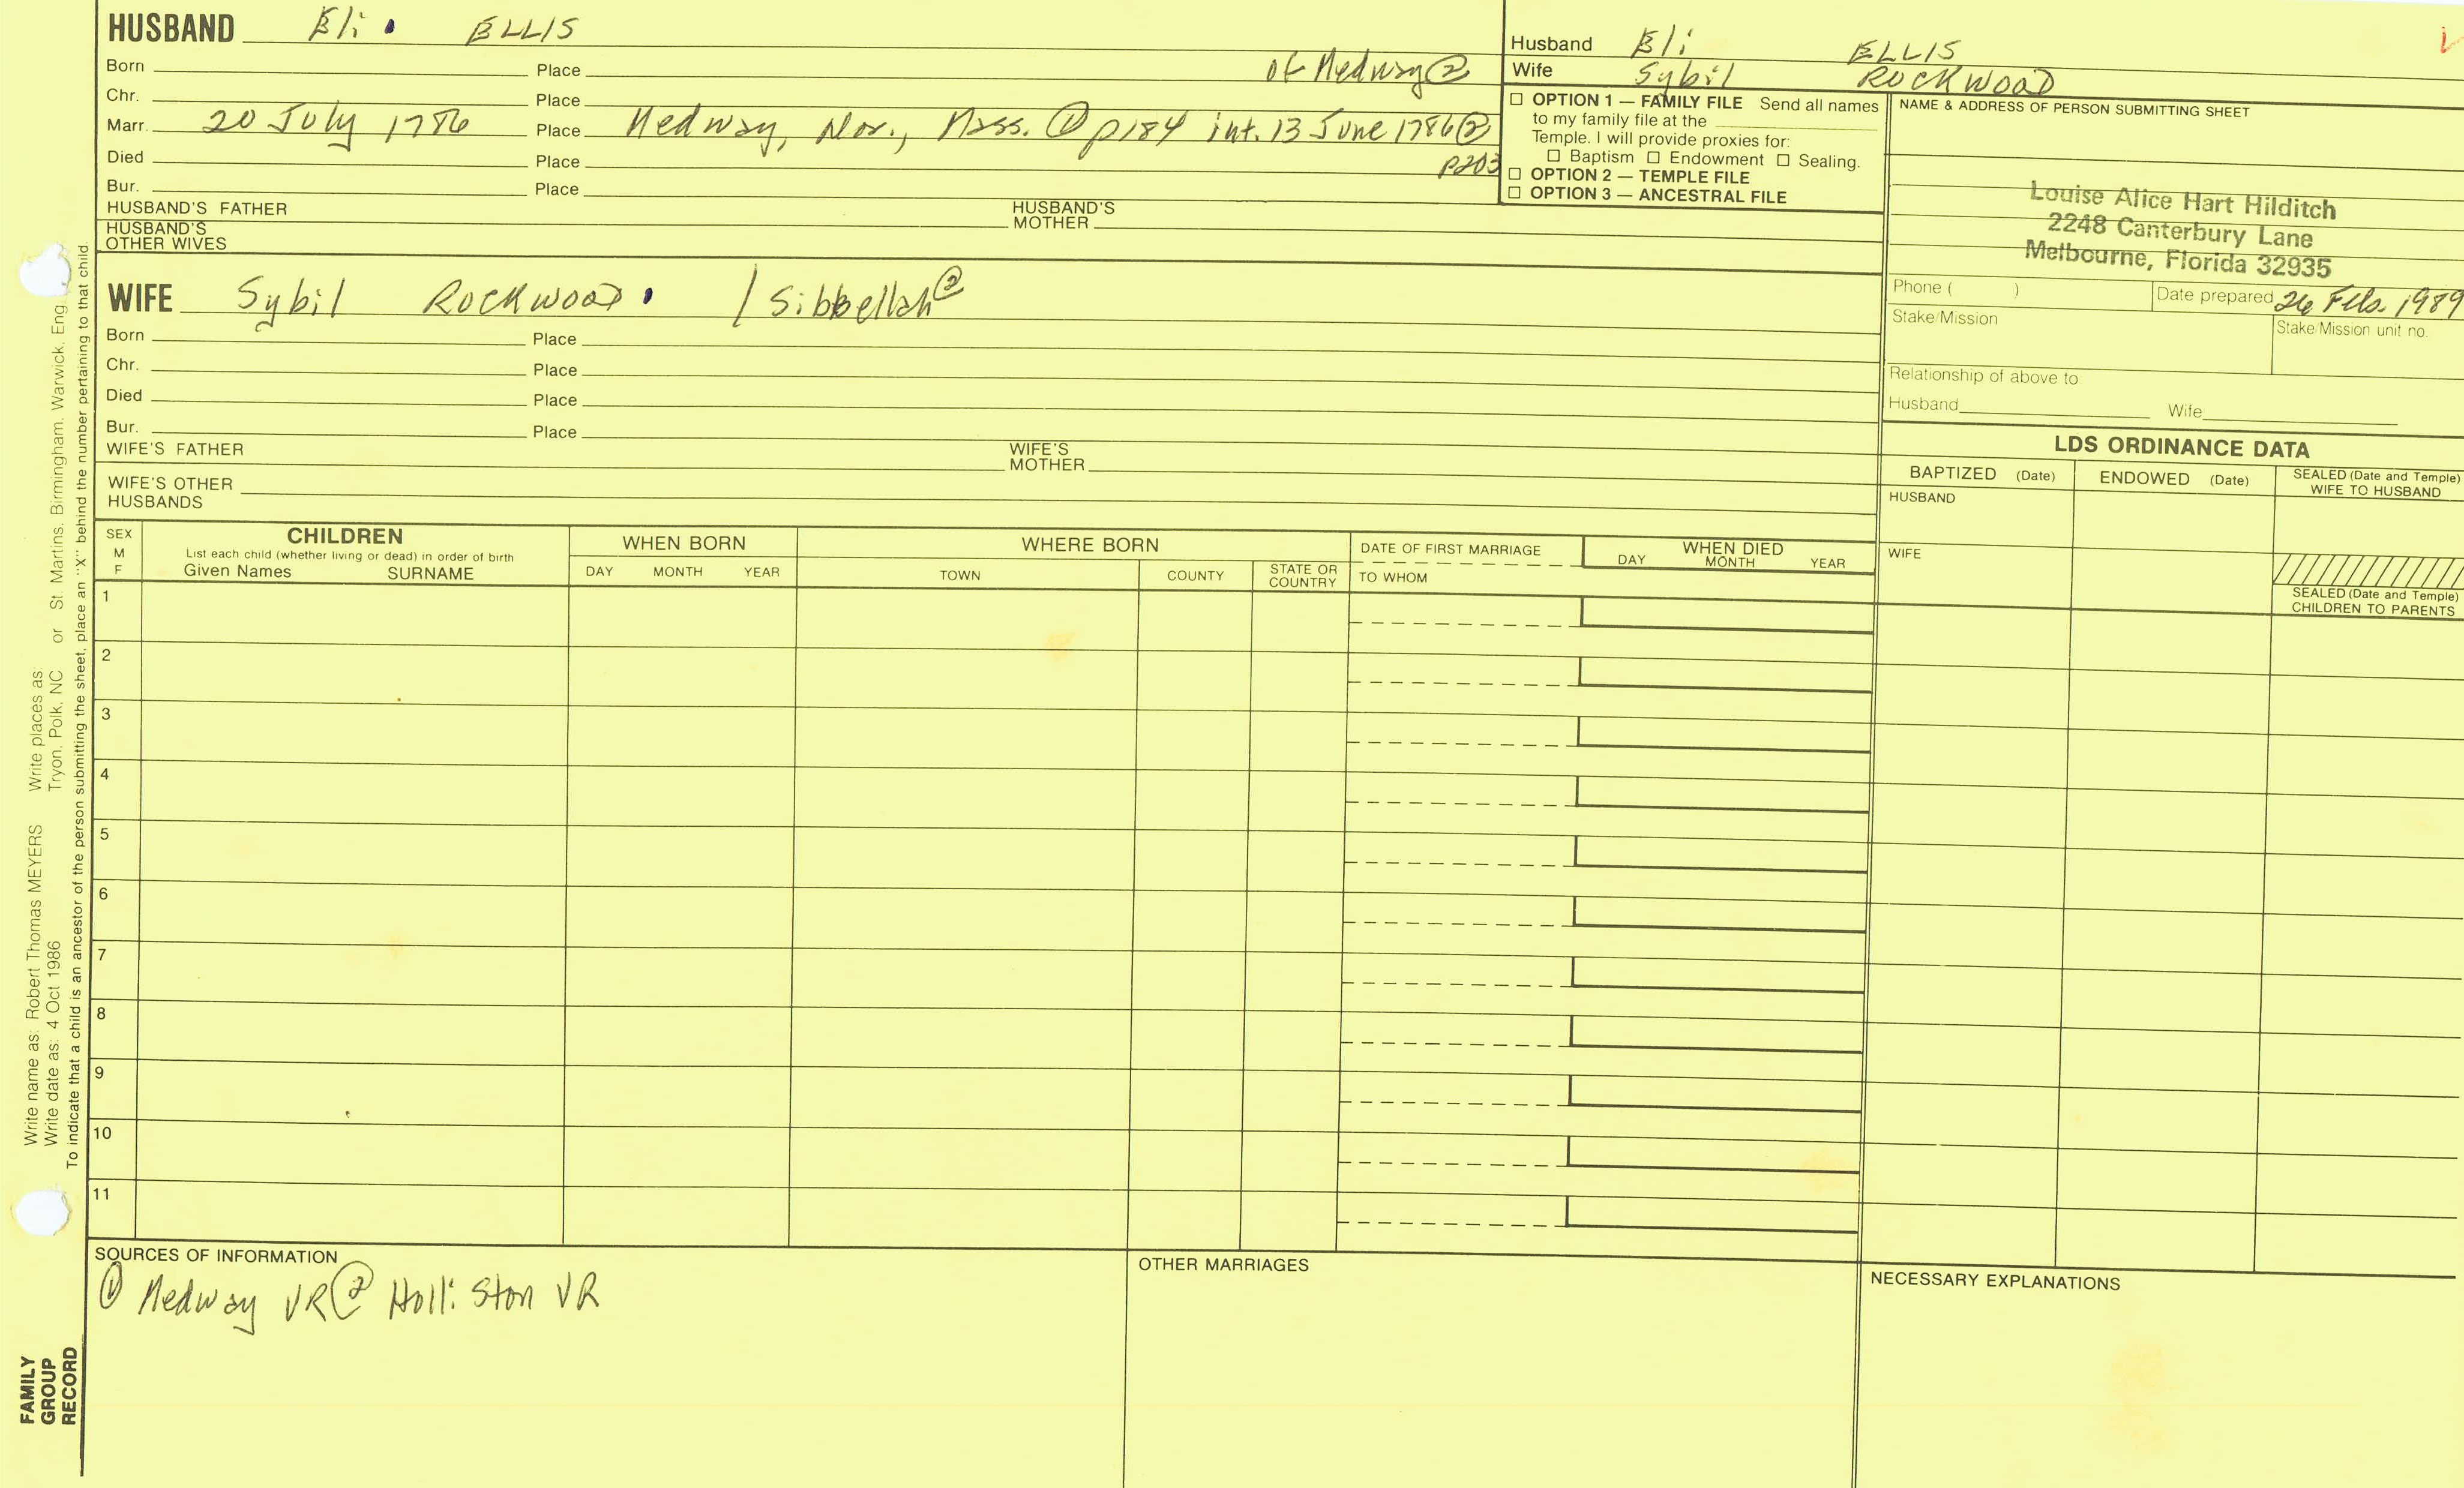 HUSBAND Eli ELLIS
Born Place of Medway ②
Chr. Place
Marr. 20 July 1786 Place Medway, Nor., Mass. ① p184 int. 13 June 1786 ②
p203
Died Place
Bur. Place
HUSBAND'S FATHER HUSBAND'S MOTHER
HUSBAND'S OTHER WIVES
Husband Eli ELLIS
Wife Sybil ROCKWOOD
☐ OPTION 1 — FAMILY FILE Send all names
to my family file at the
Temple. I will provide proxies for:
☐ Baptism ☐ Endowment ☐ Sealing.
☐ OPTION 2 — TEMPLE FILE
☐ OPTION 3 — ANCESTRAL FILE
NAME & ADDRESS OF PERSON SUBMITTING SHEET
Louise Alice Hart Hilditch
2248 Canterbury Lane
Melbourne, Florida 32935
Phone ( )
Date prepared 26 Feb. 1989
Stake/Mission
Stake/Mission unit no.
Relationship of above to
Husband Wife
WIFE Sybil ROCKWOOD / Sibbellah ②
Born Place
Chr. Place
Died Place
Bur. Place
WIFE'S FATHER WIFE'S MOTHER
WIFE'S OTHER HUSBANDS
LDS ORDINANCE DATA
BAPTIZED (Date) ENDOWED (Date) SEALED (Date and Temple) WIFE TO HUSBAND
HUSBAND
WIFE
SEALED (Date and Temple)
CHILDREN TO PARENTS
SEX
M
F
CHILDREN
List each child (whether living or dead) in order of birth
Given Names SURNAME
WHEN BORN
DAY MONTH YEAR
WHERE BORN
TOWN COUNTY STATE OR COUNTRY
DATE OF FIRST MARRIAGE
TO WHOM
WHEN DIED
DAY MONTH YEAR
1
2
3
4
5
6
7
8
9
10
11
SOURCES OF INFORMATION
① Medway VR ② Holliston VR
OTHER MARRIAGES
NECESSARY EXPLANATIONS
Write name as: Robert Thomas MEYERS Write places as:
Write date as: 4 Oct 1986 Tryon, Polk, NC or St. Martins, Birmingham, Warwick, Eng.
To indicate that a child is an ancestor of the person submitting the sheet, place an "X" behind the number pertaining to that child.
FAMILY
GROUP
RECORD